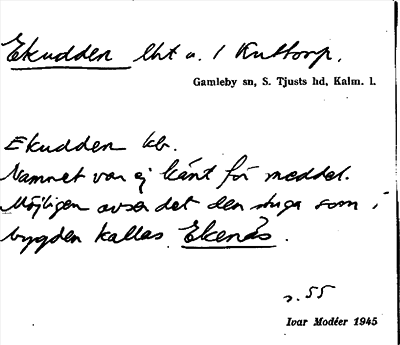 Ekudden lht u. / Kulltorp.
Gamleby sn, S. Tjusts hd, Kalm. l.
Ekudden kb.
Namnet var ej känt för meddel.
Möjligen avser det den stuga som i
bygden kallas Ekenäs.
s. 55
Ivar Modéer 1945